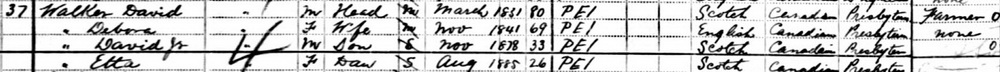 37 Walker David " M Head M March 1831 80 PEI Scotch Canadian Presbyten Farmer 0
" Debora F Wife M Nov 1841 69 PEI English Canadian Presbyten none
" David Jr M Son S Nov 1878 33 PEI Scotch Canadian Presbyten 0
" Etta F Dau S Aug 1885 26 PEI Scotch Canadian Presbyten